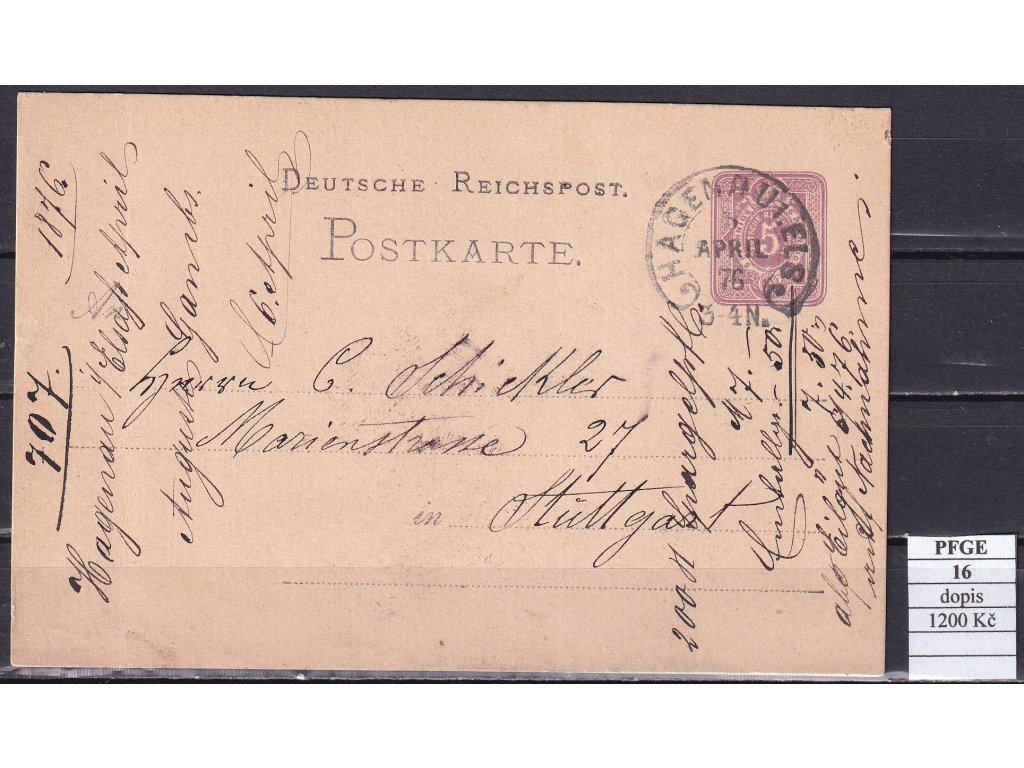 DEUTSCHE REICHSPOST.
POSTKARTE.
HAGENAU i. ELS
APRIL
76
3-4N.
5
An
Herrn C. Schickler
Marienstrasse 27
in Stuttgart
1876
707.
Hagenau i/Elsaß April
Auguste Gambs.
6. April
200
7.
50
7. 50
Eilgut 6/4 76
mit Nachnahme
PFGE
16
dopis
1200 Kč